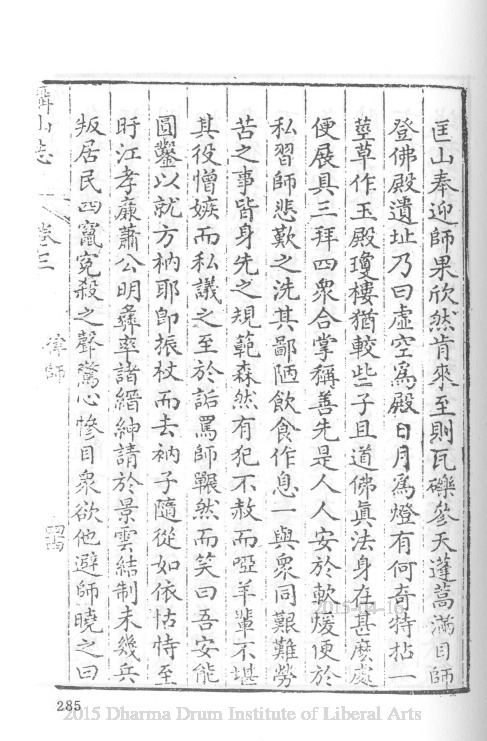 匡山奉迎師果欣然肯來至則瓦礫參天蓬蒿滿目師
登佛殿遺址乃曰虛空爲殿日月爲燈有何奇特拈一
莖草作玉殿瓊樓猶較些子且道佛眞法身在甚麽處
便展具三拜四衆合掌稱善先是人人安於軟煖便於
私習師悲歎之洗其鄙陋飲食作息一與衆同艱難勞
苦之事皆身先之規範森然有犯不赦而啞羊輩不堪
其役憎嫉而私議之至於詬罵師囅然而笑曰吾安能
圓鑿以就方衲耶卽振杖而去衲子隨從如依怙恃至
盱江孝廉蕭公明彞率諸縉紳請於景雲結制未幾兵
叛居民四竄寃殺之聲驚心慘目衆欲他避師曉之曰
山志 卷三 律師
285
2015-04-16
2015 Dharma Drum Institute of Liberal Arts